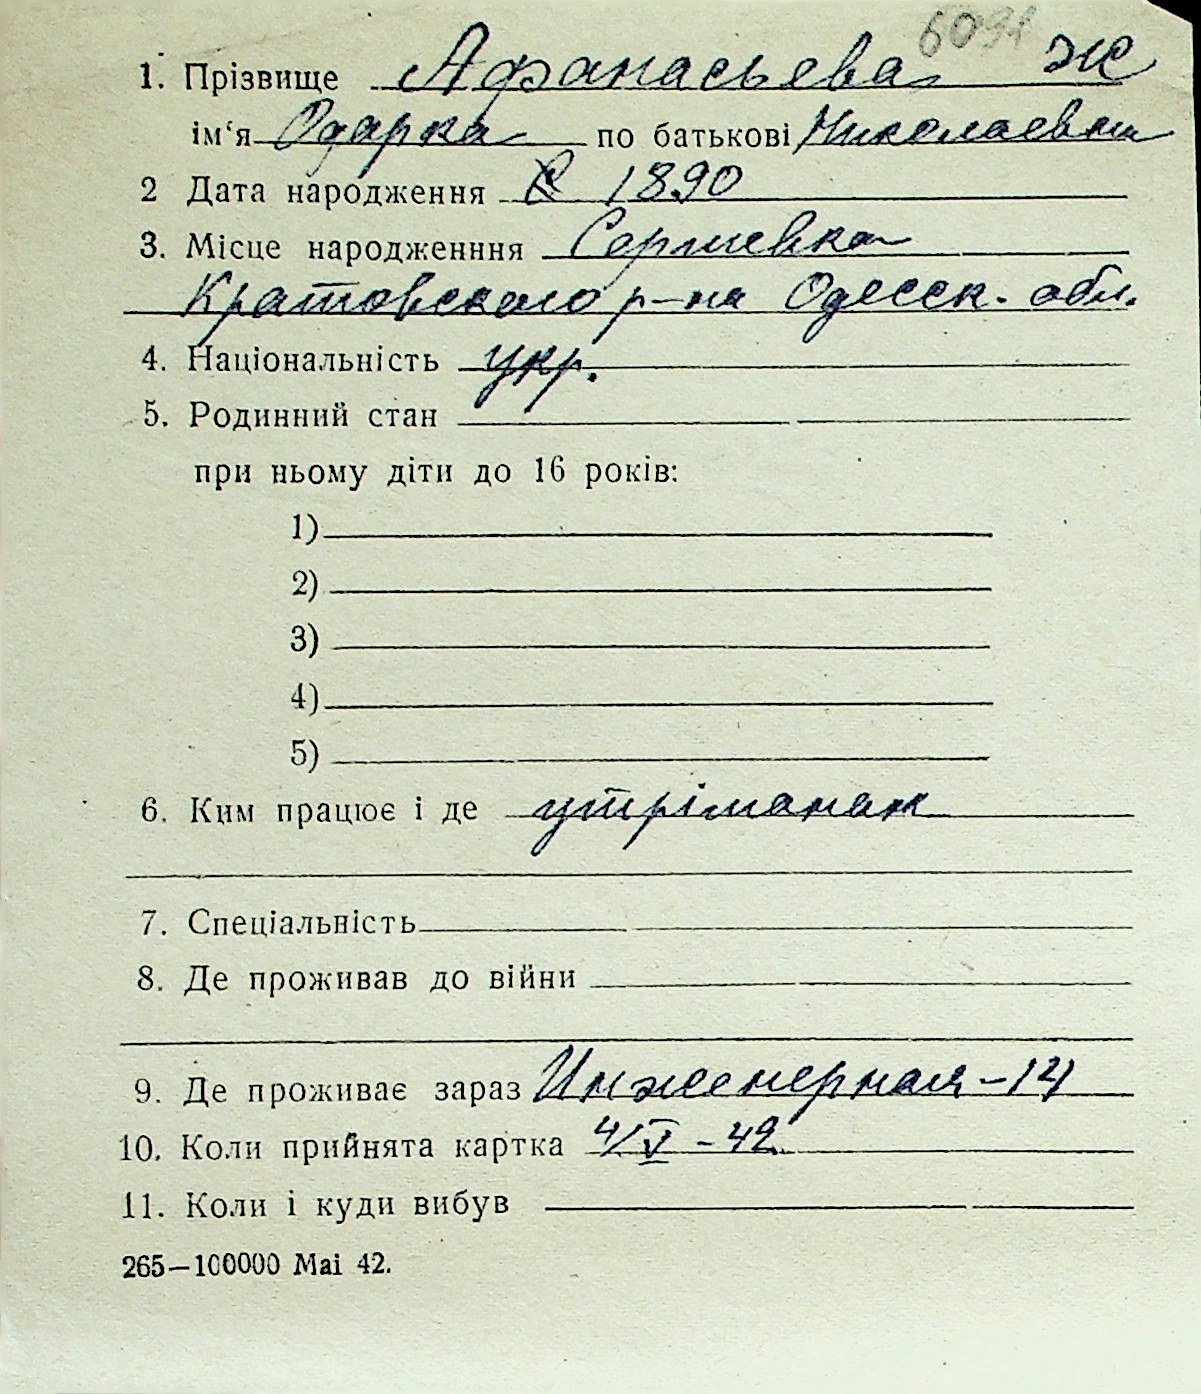 6091
1. Прізвище Афанасьева Ж
ім‘я Одарка по батькові Николаевна
2 Дата народження 1890
3. Місце народженння Сергиевка
Кратовского р-на Одесск. обл.
4. Національність укр.
5. Родинний стан
при ньому діти до 16 років:
1)
2)
3)
4)
5)
6. Ким працює і де утріманак
7. Спеціальність
8. Де проживав до війни
9. Де проживає зараз Инженерная-14
10. Коли прийнята картка 4/V-42
11. Коли і куди вибув
265—100000 Mai 42.